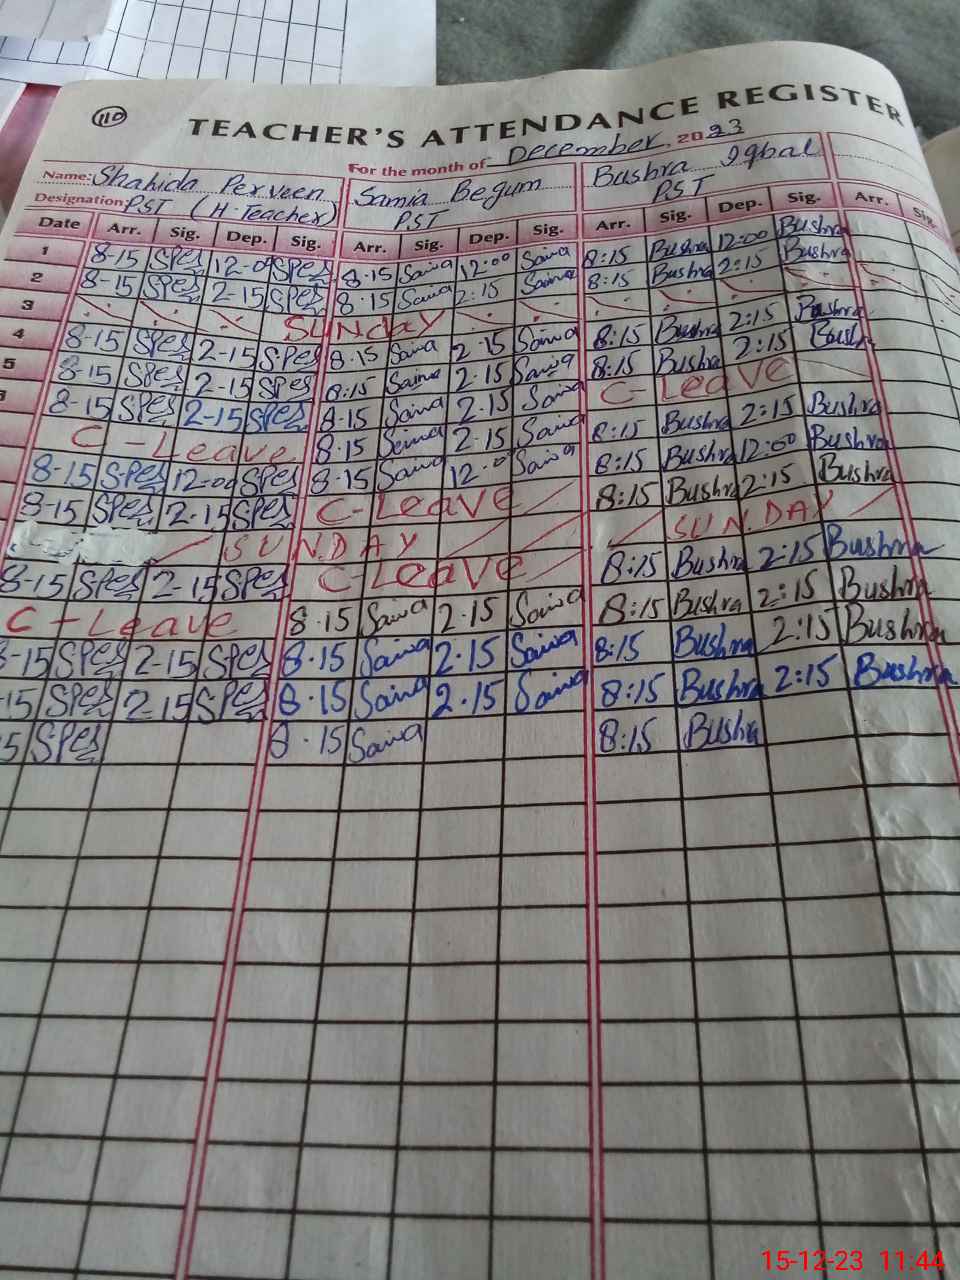 110
TEACHER'S ATTENDANCE REGISTER
For the month of December, 2023
Name: Shahida Perveen Samia Begum Bushra Iqbal
Designation P.S.T (H-Teacher) P.S.T P.S.T
Date Arr. Sig. Dep. Sig. Arr. Sig. Dep. Sig. Arr. Sig. Dep. Sig. Arr. Sig.
1 8-15 SPes 12-00 SPes 8.15 Samia 12:00 Samia 8:15 Bushra 12:00 Bushra
2 8-15 SPes 2-15 SPes 8.15 Samia 2:15 Samia 8:15 Bushra 2:15 Bushra
3 SUNday
4 8-15 SPes 2-15 SPes 8.15 Samia 2.15 Samia 8:15 Bushra 2:15 Bushra
5 8-15 SPes 2-15 SPes 8:15 Samia 2.15 Samia 8:15 Bushra 2:15 Bush
8-15 SPes 2-15 SPes 8.15 Samia 2.15 Samia C-LEAVE
C-Leave 8.15 Samia 2.15 Samia 8:15 Bushra 2:15 Bushra
8-15 SPes 12-00 SPes 8.15 Samia 12.0 Samia 8:15 Bushra 12:00 Bushra
8-15 SPes 2.15 SPes C-Leave 8:15 Bushra 2:15 Bushra
SUN.DAY SUN.DAY
8-15 SPes 2-15 SPes C-Leave 8:15 Bushra 2:15 Bushra
C-Leave 8.15 Samia 2.15 Samia 8:15 Bushra 2:15 Bushra
8-15 SPes 2-15 SPes 8.15 Samia 2.15 Samia 8:15 Bushra 2:15 Bushra
-15 SPes 2-15 SPes 8.15 Samia 2.15 Samia 8:15 Bushra 2:15 Bushra
5 SPes 8.15 Samia 8:15 Bushra
15-12-23 11:44